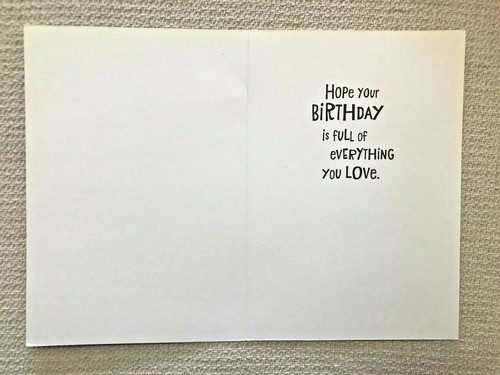 HOPe YOUr
BiRTHDAY
is fULL OF
eVERYTHING
YOU LOVe.